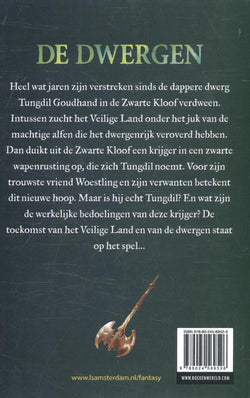 DE DWERGEN
Heel wat jaren zijn verstreken sinds de dappere dwerg
Tungdil Goudhand in de Zwarte Kloof verdween.
Intussen zucht het Veilige Land onder het juk van de
machtige alfen die het dwergenrijk veroverd hebben.
Dan duikt uit de Zwarte Kloof een krijger in een zwarte
wapenrusting op, die zich Tungdil noemt. Voor zijn
trouwste vriend Woestling en zijn verwanten betekent
dit nieuwe hoop. Maar is hij echt Tungdil? En wat zijn
de werkelijke bedoelingen van deze krijger? De
toekomst van het Veilige Land en van de dwergen staat
op het spel...
www.lsamsterdam.nl/fantasy
WWW.BOEKENWERELD.COM